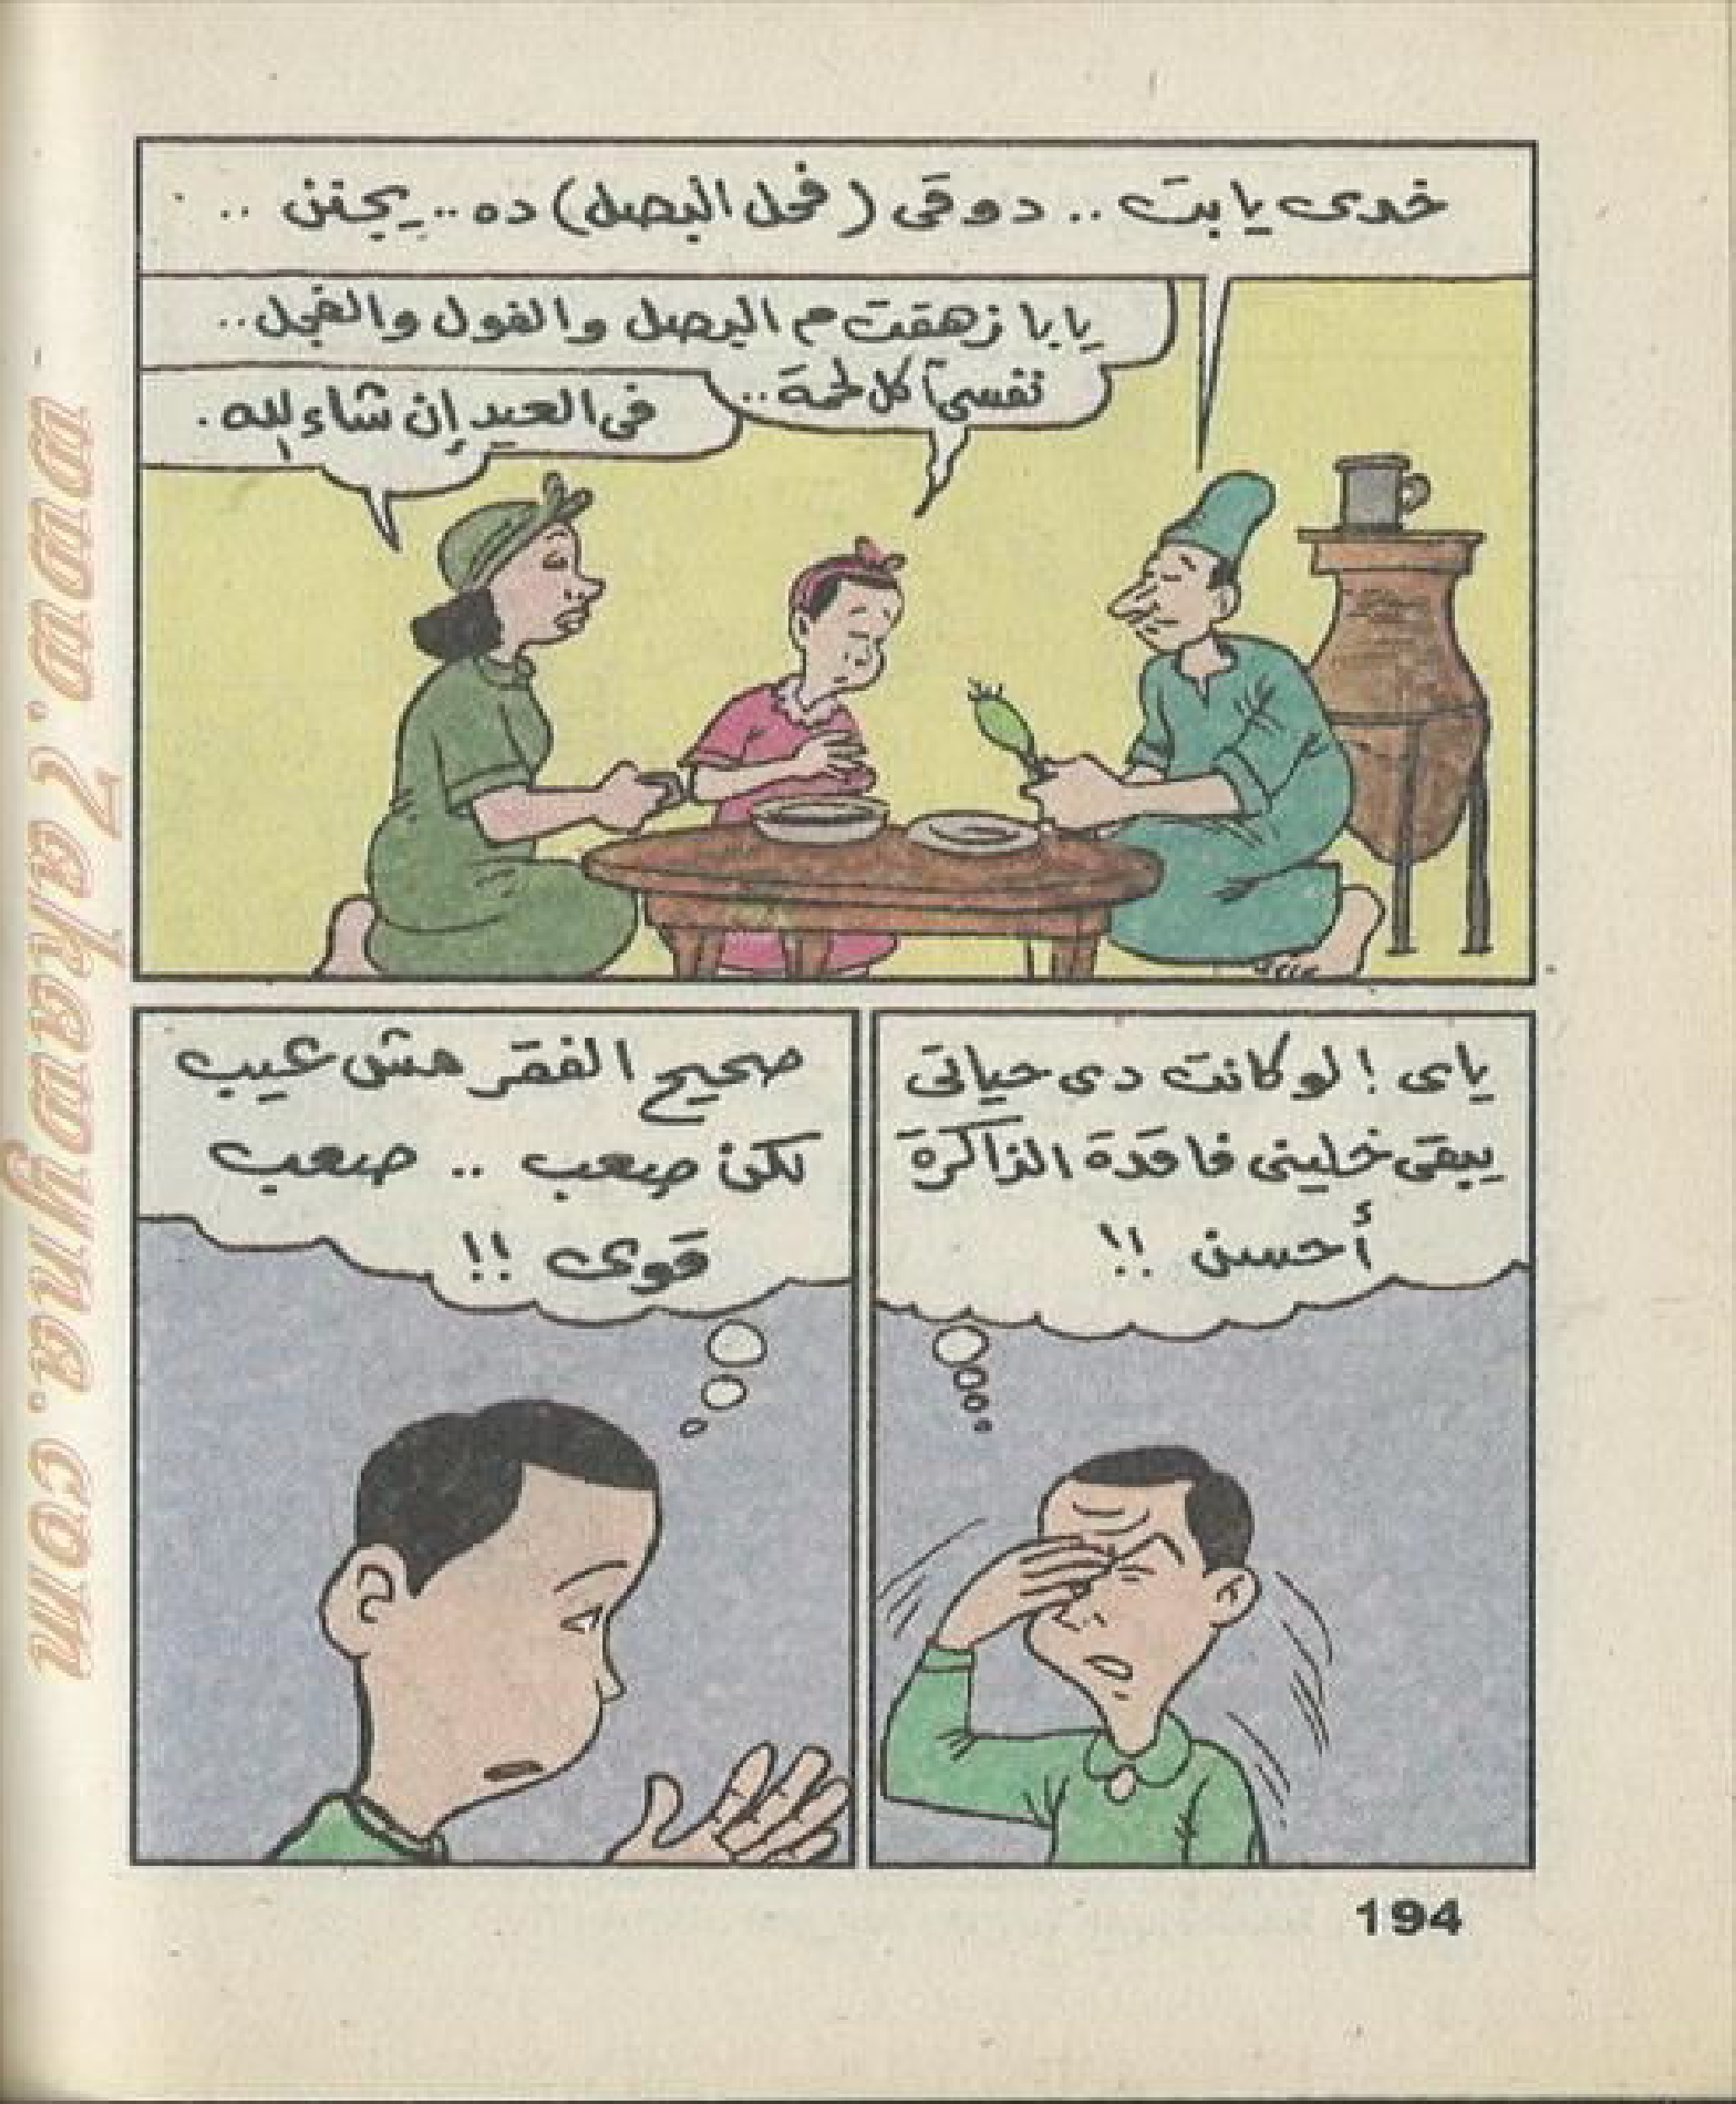 خدى يا بت .. دوقى (فحل البصل) ده .. يجنن ..
يا با زهقت م البصل والفول والفجل ..
نفسى آكل لحمة ..
فى العيد إن شاء لله .
ياى ! لو كانت دى حياتى
يبقى خلينى فاقدة الذاكرة
أحسن !!
صحيح الفقر مش عيب
لكن صعب .. صعب
قوى !!
194
www.7akawyina.com